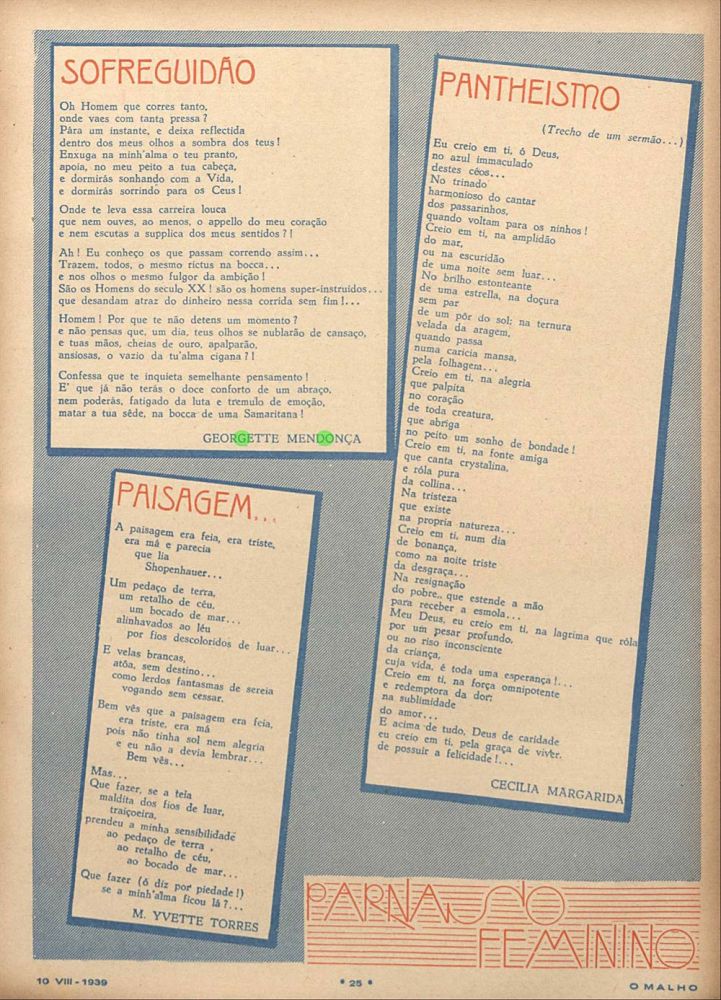 SOFREGUIDÃO
Oh Homem que corres tanto,
onde vaes com tanta pressa ?
Pára um instante, e deixa reflectida
dentro dos meus olhos a sombra dos teus !
Enxuga na minh'alma o teu pranto,
apoia, no meu peito a tua cabeça,
e dormirás sonhando com a Vida,
e dormirás sorrindo para os Ceus !
Onde te leva essa carreira louca
que nem ouves, ao menos, o appello do meu coração
e nem escutas a supplica dos meus sentidos ? !
Ah ! Eu conheço os que passam correndo assim...
Trazem, todos, o mesmo rictus na bocca...
e nos olhos o mesmo fulgor da ambição !
São os Homens do seculo XX ! são os homens super-instruidos...
que desandam atraz do dinheiro nessa corrida sem fim !...
Homem ! Por que te não detens um momento ?
e não pensas que, um dia, teus olhos se nublarão de cansaço,
e tuas mãos, cheias de ouro, apalparão,
ansiosas, o vazio da tu'alma cigana ? !
Confessa que te inquieta semelhante pensamento !
E' que já não terás o doce conforto de um abraço,
nem poderás, fatigado da luta e tremulo de emoção,
matar a tua sêde, na bocca de uma Samaritana !
GEORGETTE MENDONÇA
PANTHEISMO
(Trecho de um sermão...)
Eu creio em ti, ó Deus,
no azul immaculado
destes céos...
No trinado
harmonioso do cantar
dos passarinhos,
quando voltam para os ninhos !
Creio em ti, na amplidão
do mar,
ou na escuridão
de uma noite sem luar...
No brilho estonteante
de uma estrella, na doçura
sem par
de um pôr do sol; na ternura
velada da aragem,
quando passa
numa caricia mansa,
pela folhagem...
Creio em ti, na alegria
que palpita
no coração
de toda creatura,
que abriga
no peito um sonho de bondade !
Creio em ti, na fonte amiga
que canta crystalina,
e róla pura
da collina...
Na tristeza
que existe
na propria natureza...
Creio em ti, num dia
de bonança,
como na noite triste
da desgraça...
Na resignação
do pobre, que estende a mão
para receber a esmola...
Meu Deus, eu creio em ti, na lagrima que róla
por um pesar profundo,
ou no riso inconsciente
da criança,
cuja vida, é toda uma esperança !...
Creio em ti, na força omnipotente
e redemptora da dor;
na sublimidade
do amor...
E acima de tudo, Deus de caridade
eu creio em ti, pela graça de viver.
de possuir a felicidade !...
CECILIA MARGARIDA
PAISAGEM...
A paisagem era feia, era triste,
era má e parecia
que lia
Shopenhauer...
Um pedaço de terra,
um retalho de céu,
um bocado de mar...
alinhavados ao léu
por fios descoloridos de luar...
E velas brancas,
atôa, sem destino...
como lerdos fantasmas de sereia
vogando sem cessar.
Bem vês que a paisagem era feia,
era triste, era má
pois não tinha sol nem alegria
e eu não a devia lembrar...
Bem vês...
Mas...
Que fazer, se a tela
maldita dos fios de luar,
traiçoeira,
prendeu a minha sensibilidade
ao pedaço de terra ,
ao retalho de céu,
ao bocado de mar...
Que fazer (ó diz por piedade !)
se a minh'alma ficou lá ?...
M. YVETTE TORRES
PARNASO
FEMININO
10 VIII - 1939
* 25 *
O MALHO